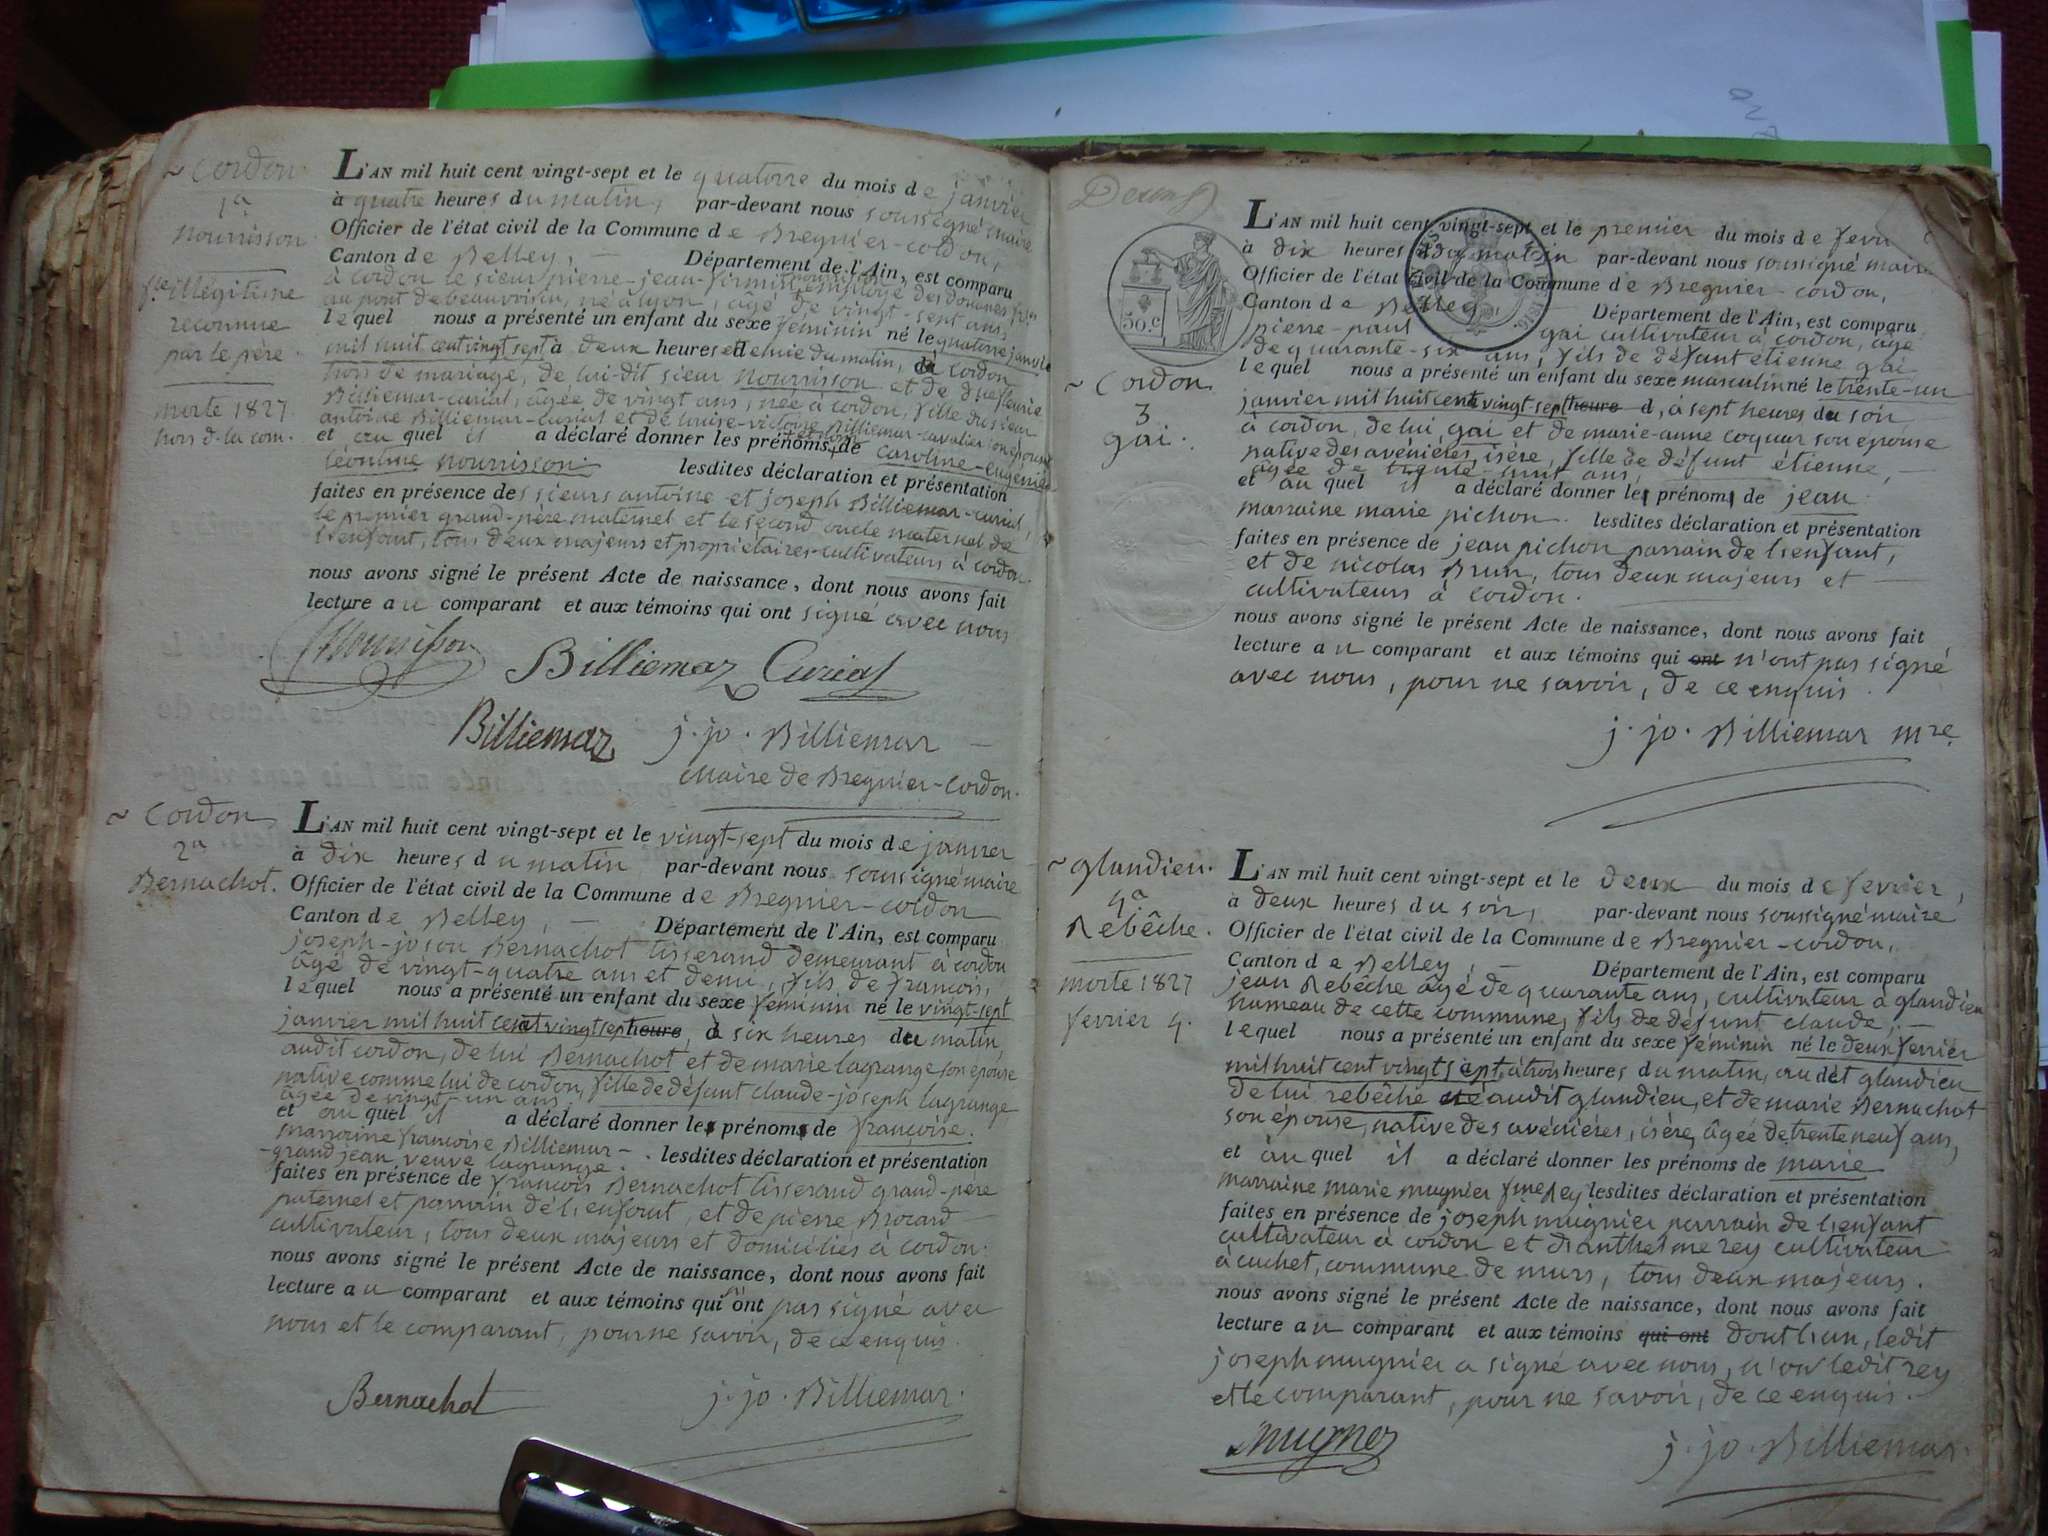 ~ Cordon
1a
Nourrisson
f.lle illégitime
reconnue
par le père.
morte 1827
hors d. la com.
L'AN mil huit cent vingt-sept et le quatorze du mois de janvier
à quatre heures du matin, par-devant nous soussigné maire
Officier de l'état civil de la Commune de Bregnier-cordon,
Canton de Belley, Département de l'Ain, est comparu
à cordon le sieur pierre-jean-firmin employé des douanes
au pont de beauvoisin, né à lyon, âgé de vingt-sept ans,
lequel nous a présenté un enfant du sexe féminin né le quatorze janvier
mil huit cent vingt sept à deux heures et demie du matin, à cordon
hors de mariage, de lui dit sieur nourrisson et de dlle fleurie
Billiemaz-curial, âgée de vingt ans, née à cordon, fille du sieur
antoine Billiemaz-curial et de louise-victoire Billiemaz-cavalier son épouse
et au quel il a déclaré donner les prénoms et nom de caroline-eugenie
léontine nourrisson. lesdites déclaration et présentation
faites en présence des sieurs antoine et joseph Billiemaz-curial,
le premier grand-père maternel et le second oncle maternel de
l'enfant, tous deux majeurs et propriétaires-cultivateurs à cordon.
nous avons signé le présent Acte de naissance, dont nous avons fait
lecture au comparant et aux témoins qui ont signé avec nous
Nourrisson Billiemaz Curial
Billiemaz j. jo. Billiemaz
Maire de Bregnier-cordon.
~ Cordon
2a
Bernachot.
L'AN mil huit cent vingt-sept et le vingt-sept du mois de janvier
à dix heures du matin par-devant nous soussigné maire
Officier de l'état civil de la Commune de Bregnier-cordon
Canton de Belley, Département de l'Ain, est comparu
joseph-joson Bernachot tisserand demeurant à cordon
âgé de vingt-quatre ans et demi, fils de françois,
lequel nous a présenté un enfant du sexe féminin né le vingt-sept
janvier mil huit cent vingt sept heure, à six heures du matin
audit cordon, de lui Bernachot et de marie lagrange son épouse
native comme lui de cordon, fille de défunt claude-joseph lagrange
âgée de vingt-un ans
et au quel il a déclaré donner les prénoms de françoise.
marraine françoise Billiemaz-
grandjean veuve lagrange. lesdites déclaration et présentation
faites en présence de françois Bernachot tisserand grand-père
paternel et parrain de l'enfant, et de pierre Brocard
cultivateur, tous deux majeurs et domiciliés à cordon.
nous avons signé le présent Acte de naissance, dont nous avons fait
lecture au comparant et aux témoins qui n'ont pas signé avec
nous et le comparant, pour ne savoir, de ce enquis.
Bernachot j. jo. Billiemaz.
50.c
~ Cordon
3
gai.
L'AN mil huit cent vingt-sept et le premier du mois de fevr
à dix heures du matin par-devant nous soussigné maire
Officier de l'état civil de la Commune de Bregnier-cordon,
Canton de Belley Département de l'Ain, est comparu
pierre-paul gai cultivateur à cordon, âgé
de quarante-six ans, fils de défunt étienne gai
lequel nous a présenté un enfant du sexe masculin né le trente-un
janvier mil huit cent vingt sept heure d, à sept heures du soir
à cordon, de lui gai et de marie-anne coquaz son épouse
native des avénières, isère, fille de défunt étienne,
âgée de trente-huit ans,
et au quel il a déclaré donner les prénoms de jean
marraine marie pichon. lesdites déclaration et présentation
faites en présence de jean pichon parrain de l'enfant,
et de nicolas Brun, tous deux majeurs et
cultivateurs à cordon.
nous avons signé le présent Acte de naissance, dont nous avons fait
lecture au comparant et aux témoins qui ont n'ont pas signé
avec nous, pour ne savoir, de ce enquis.
j. jo. Billiemaz mre
~ glandieu.
4a
Rebêche.
morte 1827
fevrier 4.
L'AN mil huit cent vingt-sept et le deux du mois de fevrier,
à deux heures du soir, par-devant nous soussigné maire
Officier de l'état civil de la Commune de Bregnier-cordon,
Canton de Belley, Département de l'Ain, est comparu
jean Rebêche âgé de quarante ans, cultivateur à glandieu
hameau de cette commune, fils de défunt claude,
lequel nous a présenté un enfant du sexe féminin né le deux fevrier
mil huit cent vingt sept, à trois heures du matin, audit glandieu
de lui rebêche audit glandieu, et de marie Bernachot
son épouse, native des avénières, isère, âgée de trente neuf ans,
et au quel il a déclaré donner les prénoms de marie
marraine marie mugnier fme Rey lesdites déclaration et présentation
faites en présence de joseph mugnier parrain de l'enfant
cultivateur à cordon et d'anthelme rey cultivateur
à cuchet, commune de murs, tous deux majeurs.
nous avons signé le présent Acte de naissance, dont nous avons fait
lecture au comparant et aux témoins qui ont dont l'un, ledit
joseph mugnier a signé avec nous, non ledit rey
et le comparant, pour ne savoir, de ce enquis.
Mugnier j. jo. Billiemaz.